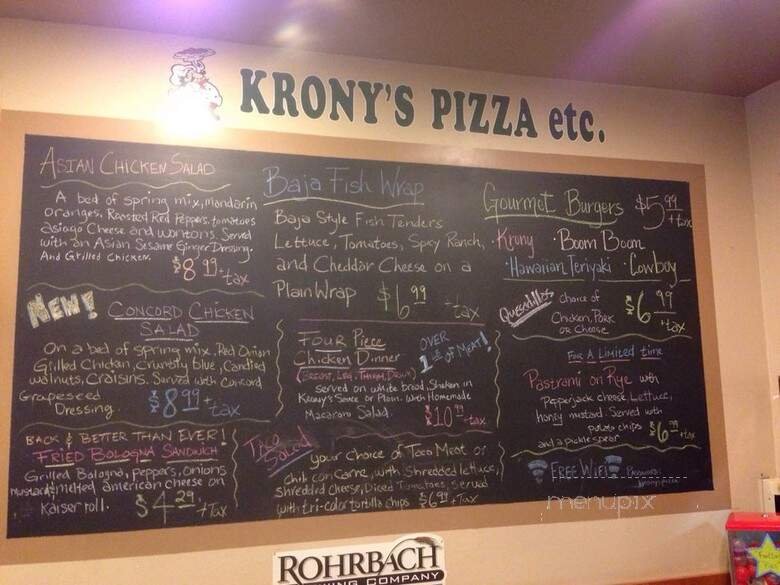 KRONY'S PIZZA etc.
ASIAN CHICKEN SALAD
A bed of spring mix, mandarin
oranges, Roasted Red Peppers, tomatoes
asiago Cheese and wontons. Served
with an Asian Sesame Ginger Dressing.
And Grilled Chicken.
$8.99 + tax
NEW!
CONCORD CHICKEN
SALAD
On a bed of spring mix, Red Onion
Grilled Chicken, crumbly blue, Candied
walnuts, Craisins. Served with Concord
Grapeseed
Dressing.
$8.99 + tax
BACK & BETTER THAN EVER!
FRIED BOLOGNA SANDWICH
Grilled Bologna, peppers, onions
mustard & melted american cheese on
Kaiser roll.
$4.29 + Tax
Baja Fish Wrap
Baja Style Fish Tenders
Lettuce, Tomatoes, Spicy Ranch,
and Cheddar Cheese on a
Plain Wrap
$6.99 + tax
FOUR Piece
Chicken Dinner
(BREAST, LEG, THIGH, DRUM)
OVER
OF MEAT!
served on white bread, Shaken in
Krony's Sauce or Plain. With Homemade
Macaroni Salad.
$10.99 + tax
Taco Salad
your choice of Taco Meat or
chili con Carne, with Shredded lettuce,
shredded cheese, Diced Tomatoes, served
with tri-color tortilla chips $6.99 + Tax
Gourmet Burgers $5.99 + tax
· Krony · Boom Boom
· Hawaiian Teriyaki · Cowboy
Quesadillas
Choice of
Chicken, Pork
OR Cheese
$6.99 + tax
FOR A Limited time
Pastrami on Rye with
Pepperjack cheese, Lettuce,
honey mustard. Served with
potato chips
and a pickle spear
FREE WIFI
Password:
menupix
ROHRBACH
BREWING COMPANY